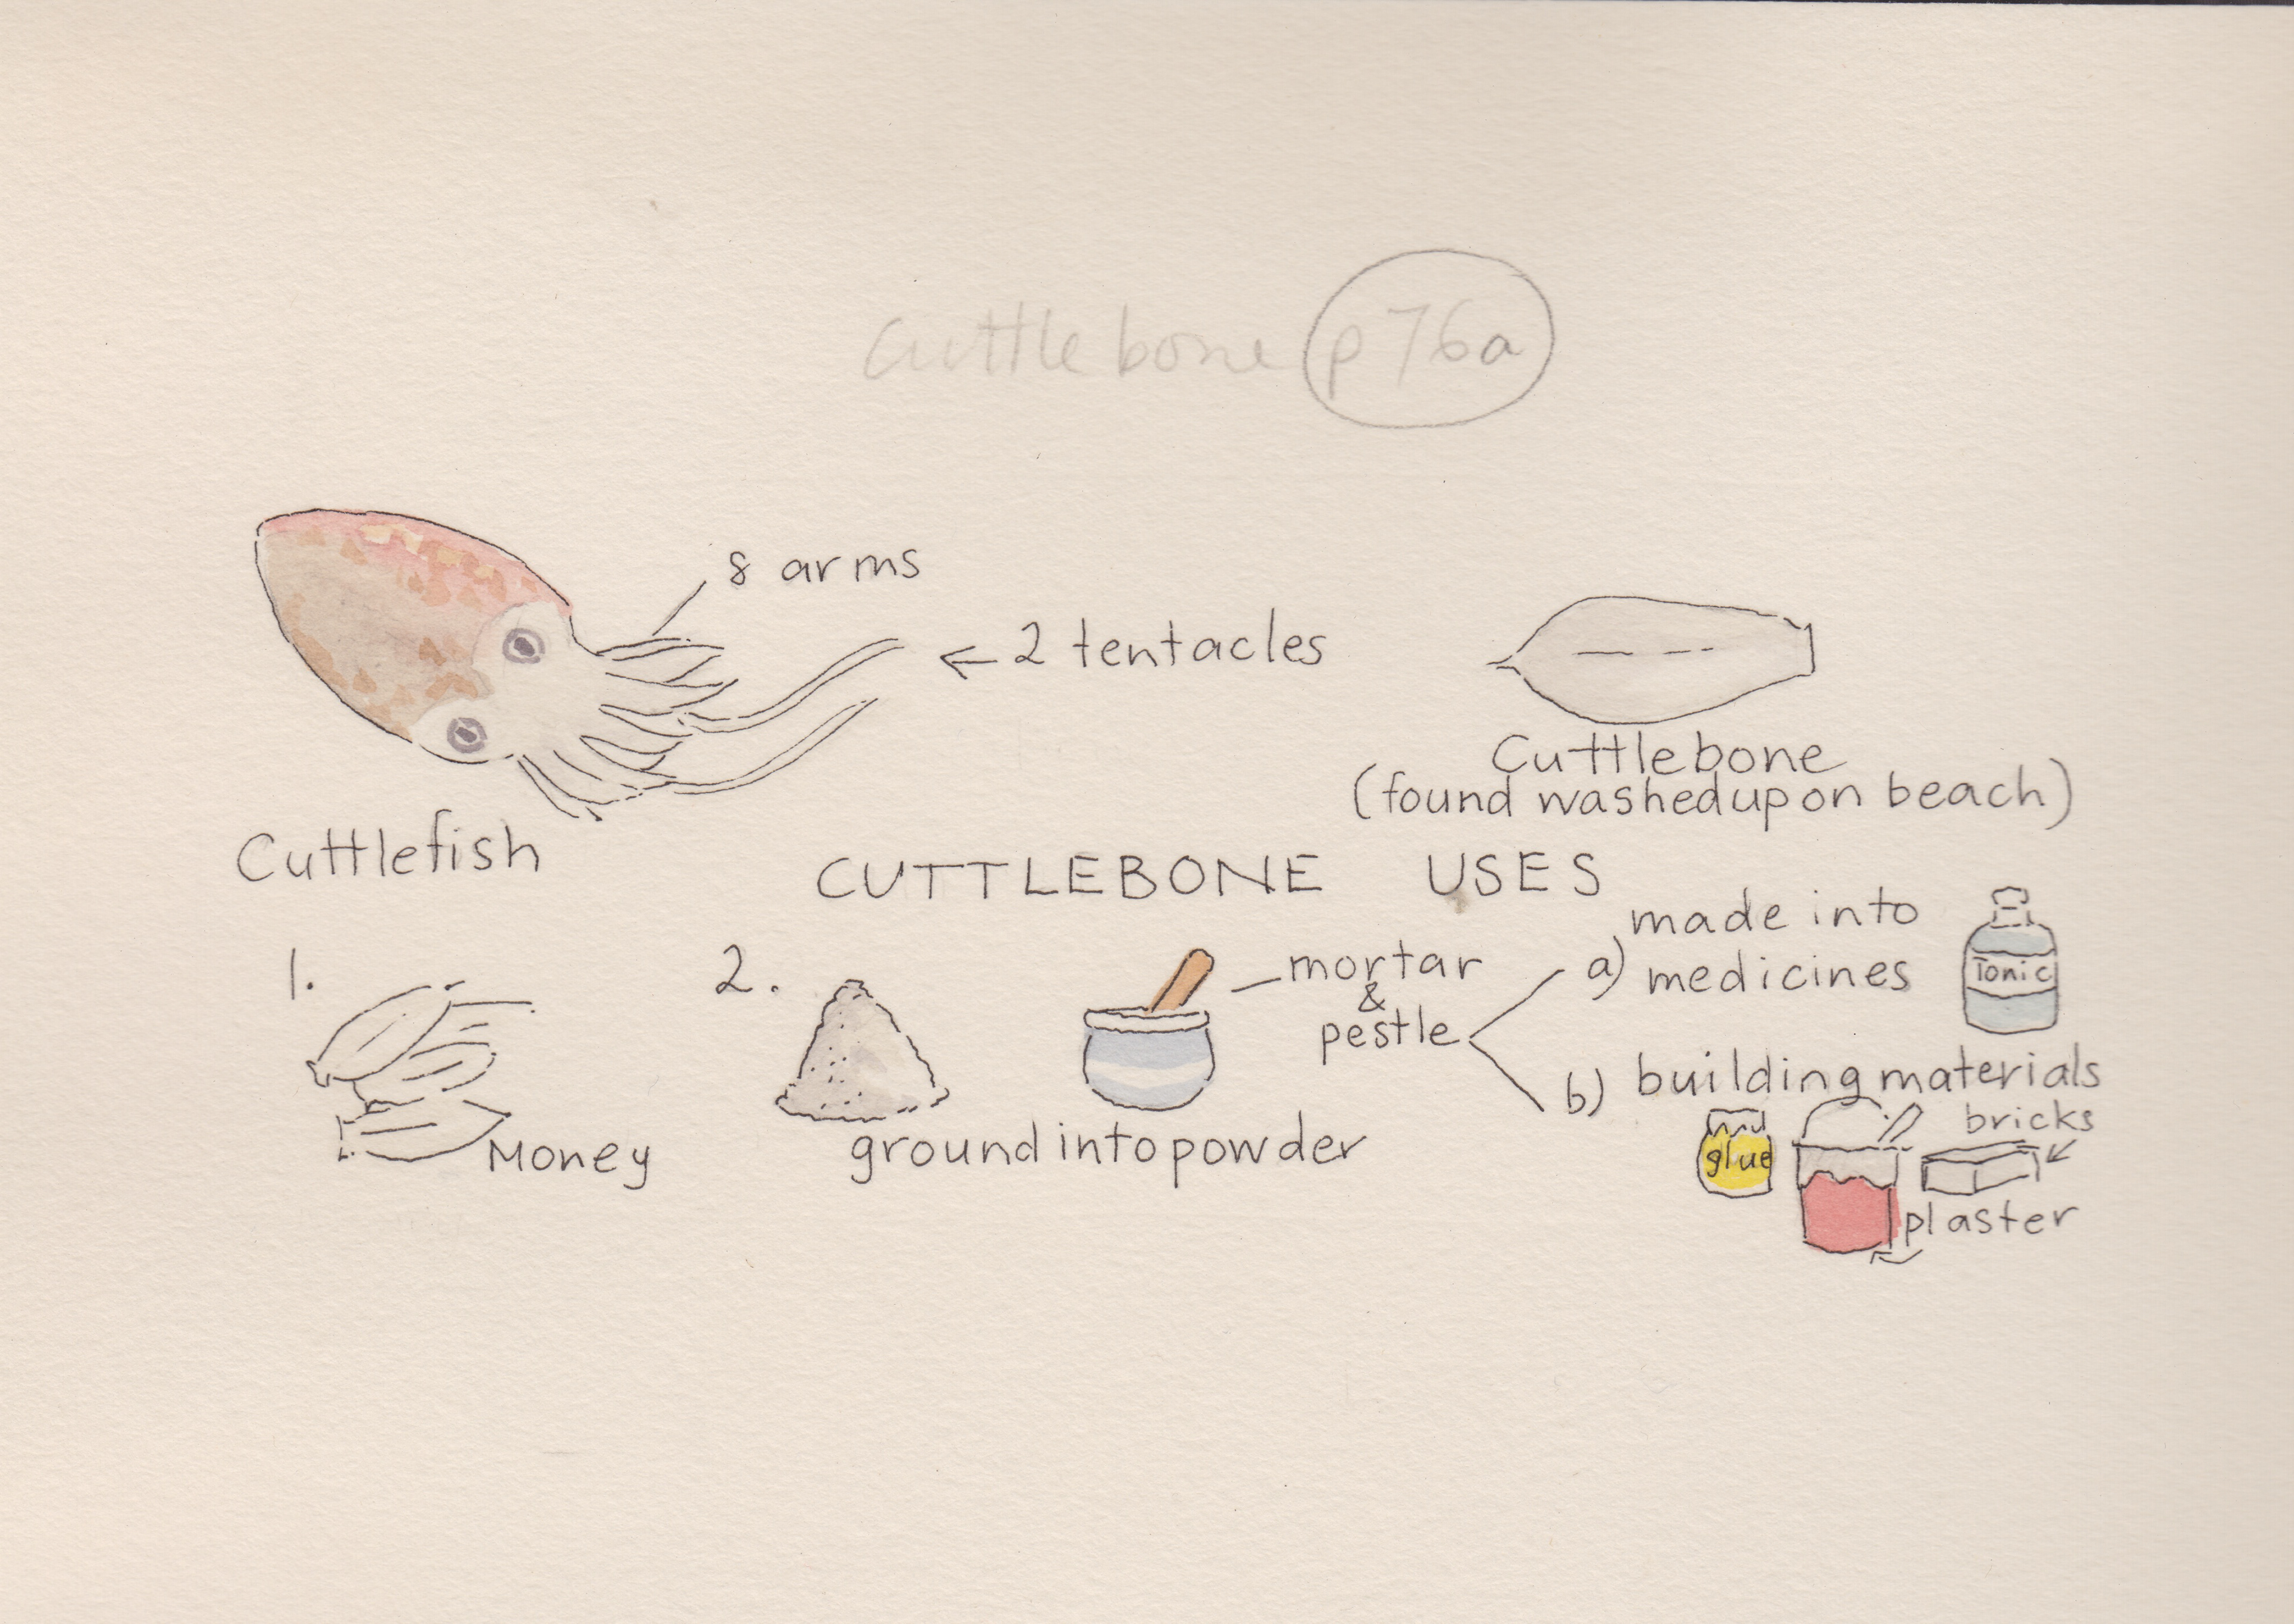 Cuttlebone p76a
8 arms
← 2 tentacles
Cuttlebone
(found washed up on beach)
Cuttlefish
CUTTLEBONE USES
1.
Money
2.
ground into powder
mortar
&
pestle
a) made into
medicines
Tonic
b) building materials
glue
bricks
plaster